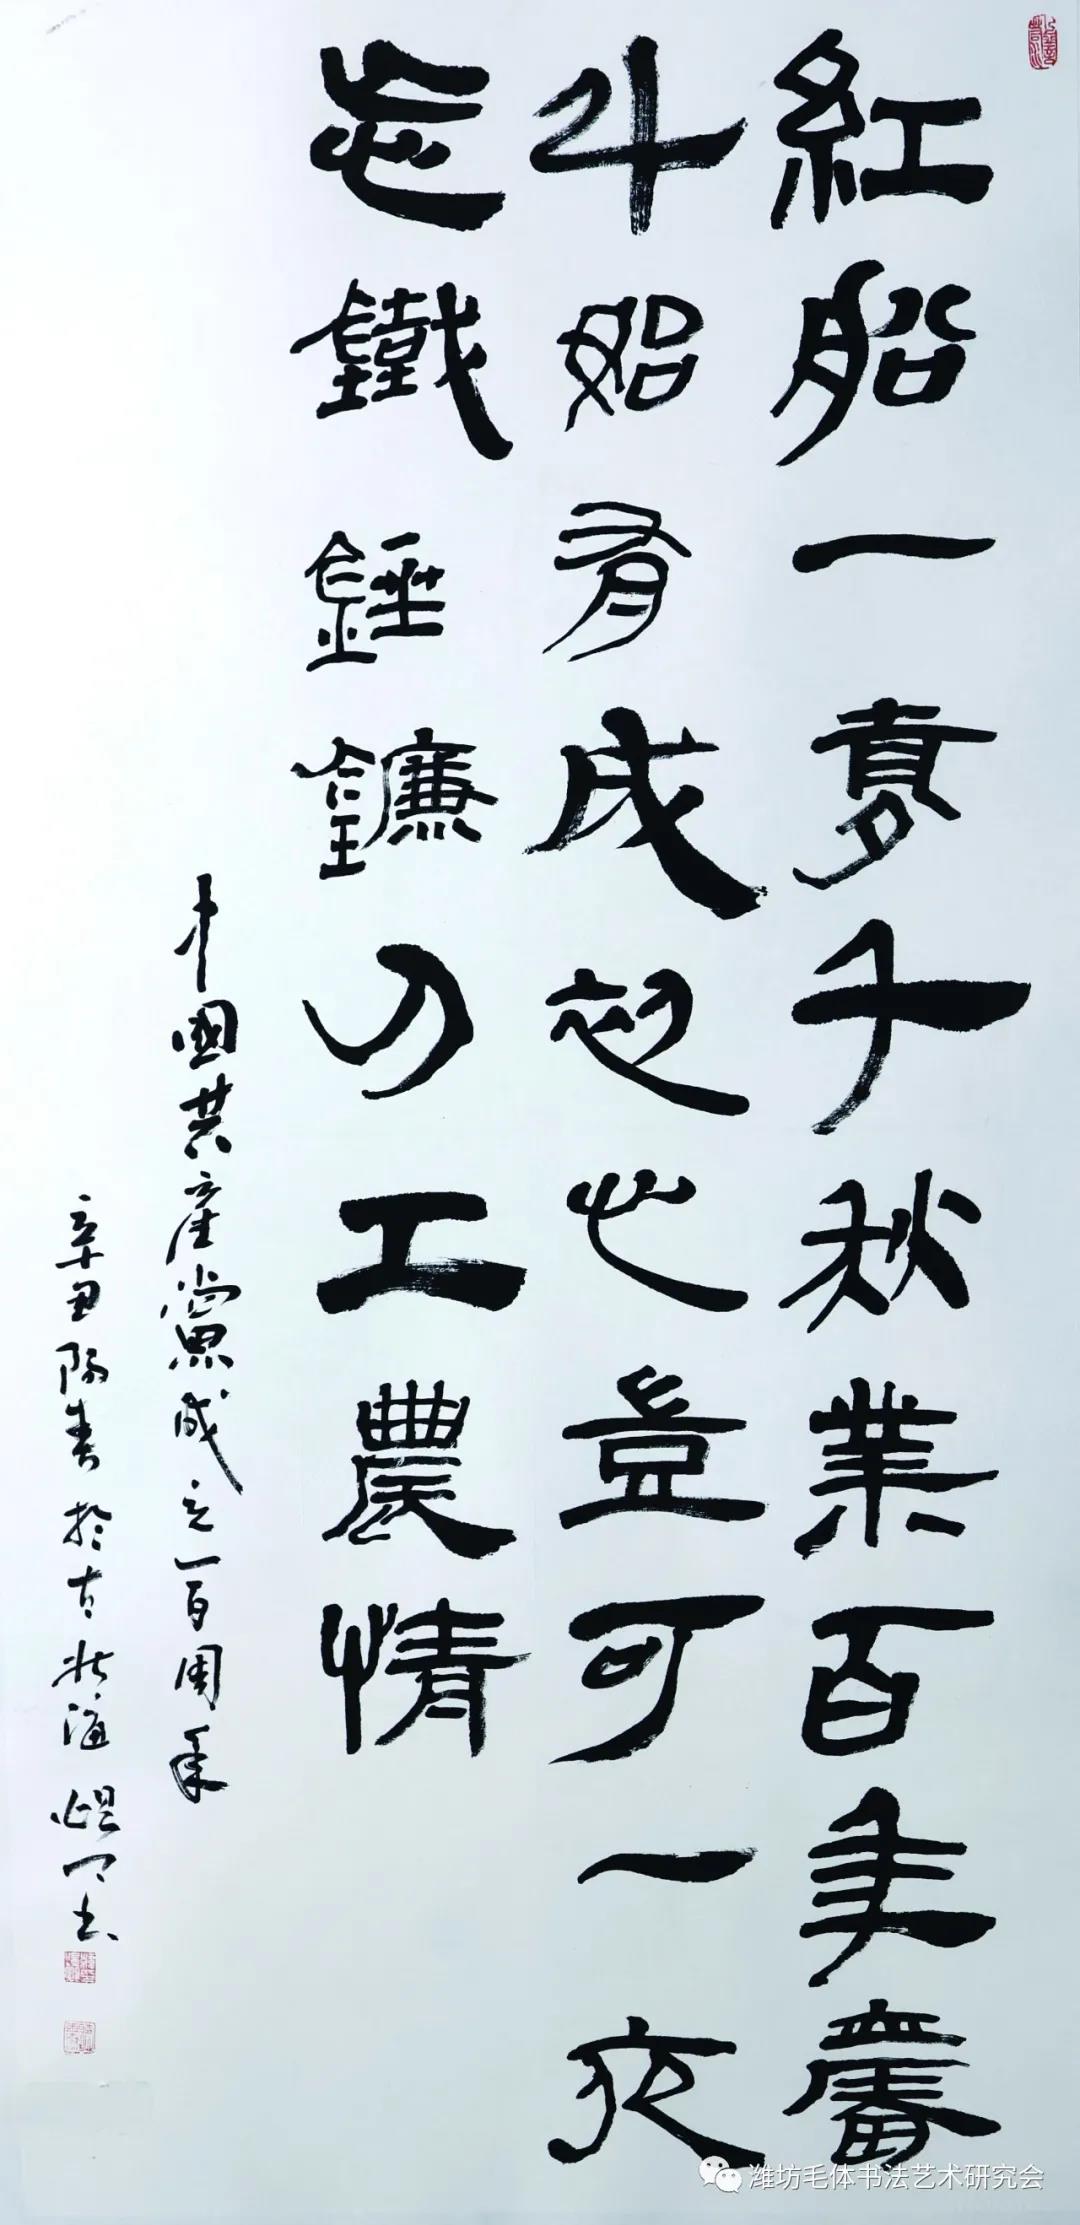 紅船一夢千秋業百年奮
斗始有成初心豈可一夜
忘鐵錘鐮刀工農情
中國共產黨成立一百周年
辛丑陽春於古北海书
潍坊毛体书法艺术研究会